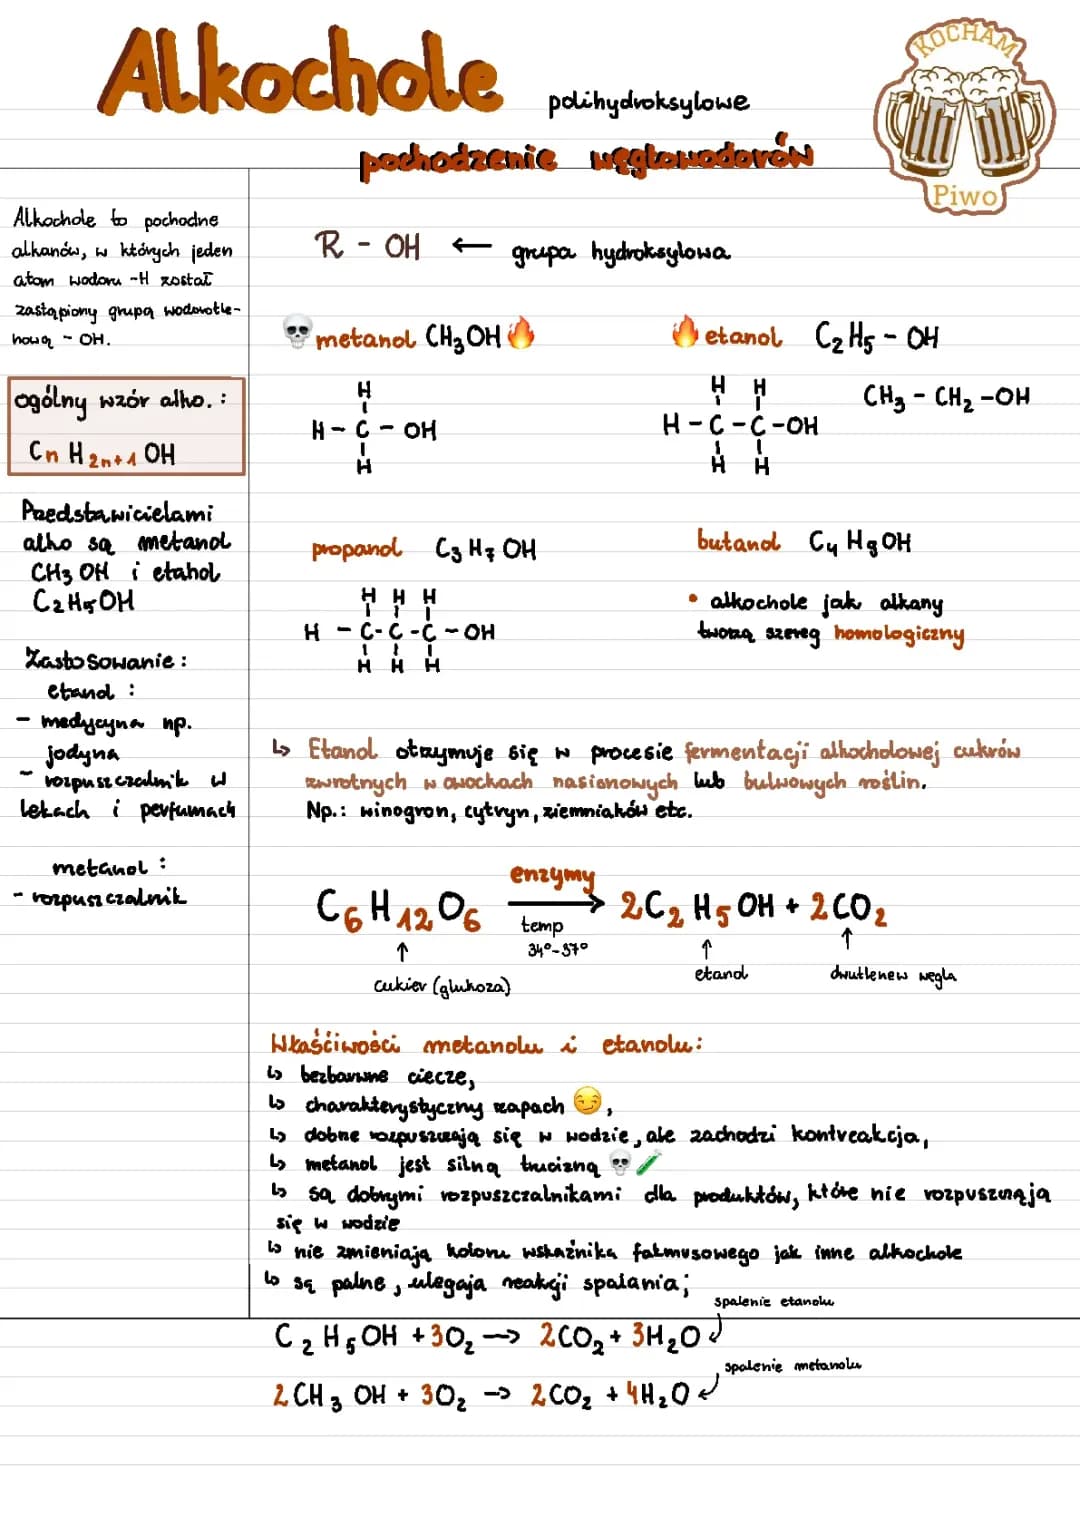 Alkochole
polihydroksylowe
pochodzenie węglowodorów
KOCHAM
Piwo
Alkochole to pochodne
alkanów, w których jeden
atom wodoru -H został
zastąpiony grupą wodorotle-
nową - OH.
ogólny wzór alko. :
Cn H2n+1 OH
Przedstawicielami
alko są metanol
CH3 OH i etanol
C2H5OH
Zastosowanie :
etanol :
- medycyna np.
jodyna
- rozpuszczalnik w
lekach i perfumach
metanol :
- rozpuszczalnik
R - OH ← grupa hydroksylowa
metanol CH3OH
H
H - C - OH
H
etanol C2H5 - OH
CH3 - CH2 -OH
H H
H - C - C -OH
H H
propanol C3 H7 OH
H H H
H - C- C -C - OH
H H H
butanol C4 H9 OH
• alkochole jak alkany
tworzą szereg homologiczny
↳ Etanol otrzymuje się w procesie fermentacji alkocholowej cukrów
zwrotnych w owockach nasionowych lub bulwowych roślin.
Np.: winogron, cytryn, ziemniaków etc.
enzymy
C6 H12 O6 → 2C2 H5 OH + 2CO2
temp
34°-37°
↑ ↑ ↑
cukier (glukoza) etanol dwutlenew węgla
Właśćiwośći metanolu i etanolu:
↳ bezbarwne ciecze,
↳ charakterystyczny zapach ,
↳ dobrze rozpuszczają się w wodzie, ale zachodzi kontreakcja,
↳ metanol jest silną trucizną
↳ są dobrymi rozpuszczalnikami dla produktów, które nie rozpuszczają
się w wodzie
↳ nie zmieniają koloru wskaźnika fakmusowego jak inne alkochole
↳ są palne, ulegaja reakcji spalania;
spalenie etanolu
C2 H5 OH + 3O2 → 2CO2 + 3H2O
spalenie metanolu
2CH3 OH + 3O2 → 2CO2 + 4H2O